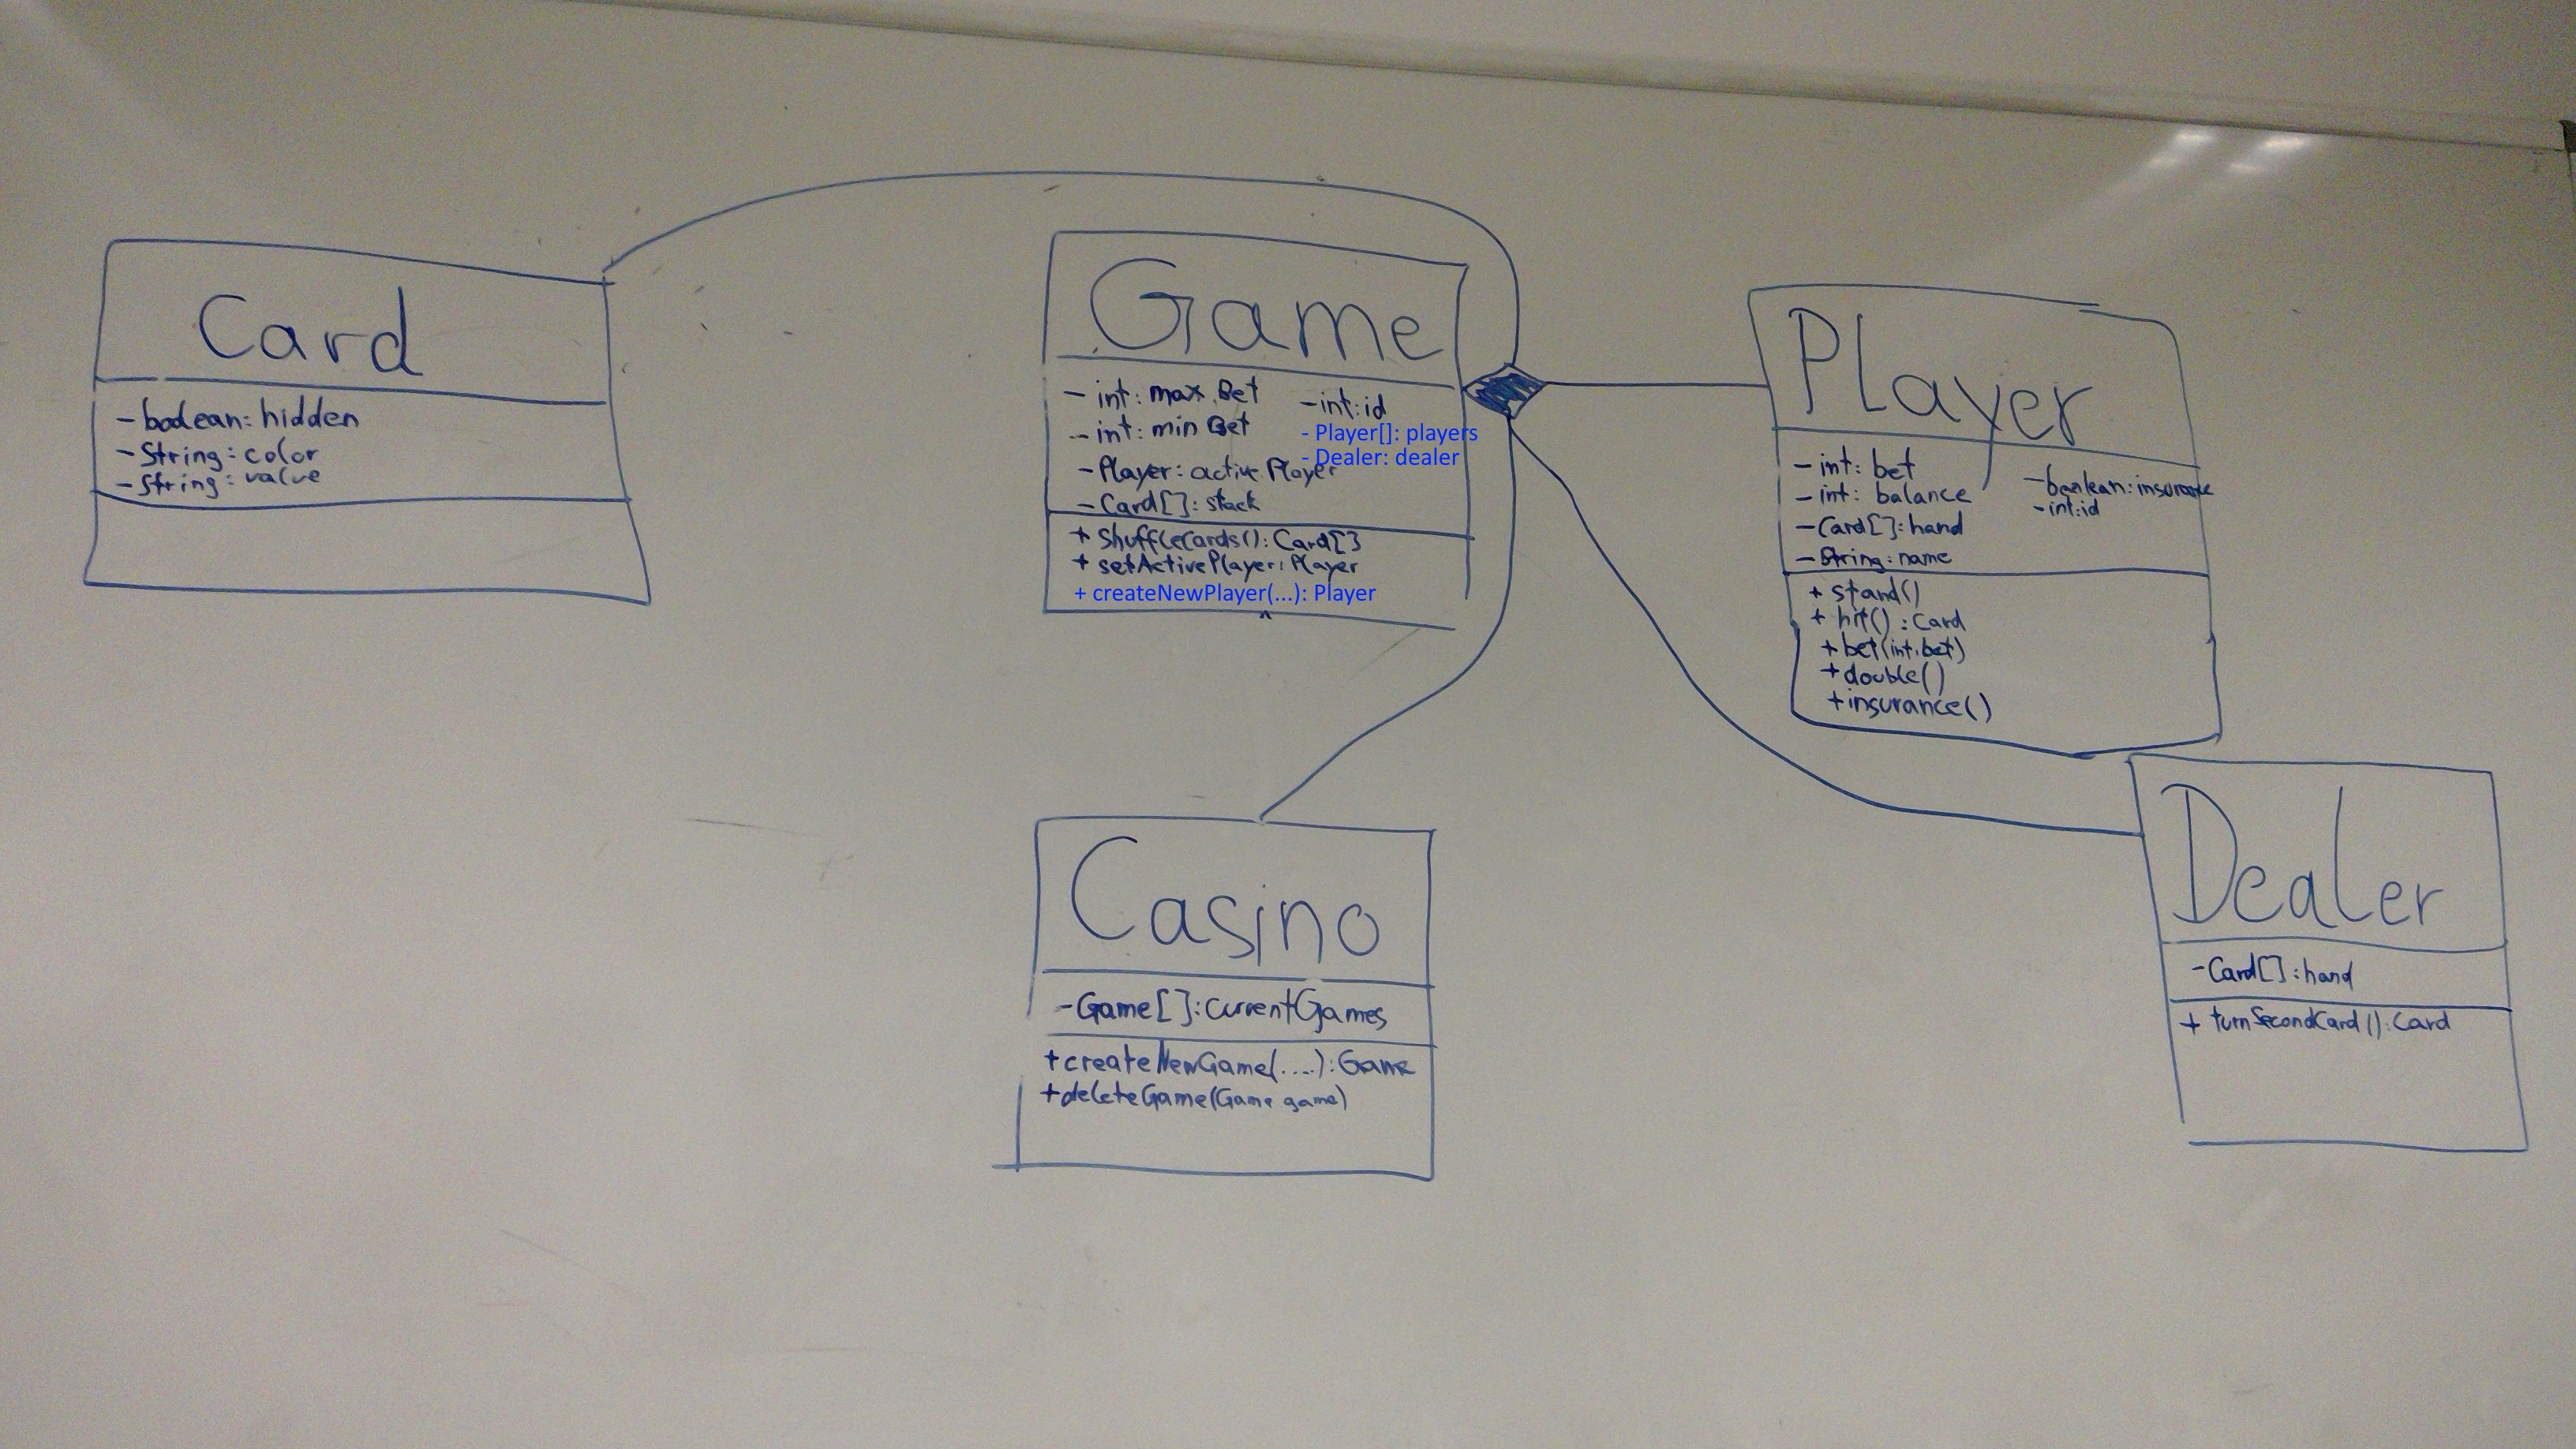 Card
- boolean: hidden
- String: color
- String: value
Game
- int: max Bet
- int: min Bet
- Player: active Player
- Card[]: stack
- int: id
- Player[]: players
- Dealer: dealer
+ shuffleCards(): Card[]
+ setActivePlayer: Player
+ createNewPlayer(...): Player
Player
- int: bet
- int: balance
- Card[]: hand
- String: name
- boolean: insurance
- int: id
+ stand()
+ hit() : Card
+ bet(int: bet)
+ double()
+ insurance()
Casino
- Game[]: currentGames
+ createNewGame(....): Game
+ deleteGame(Game game)
Dealer
- Card[]: hand
+ turnSecondCard(): Card